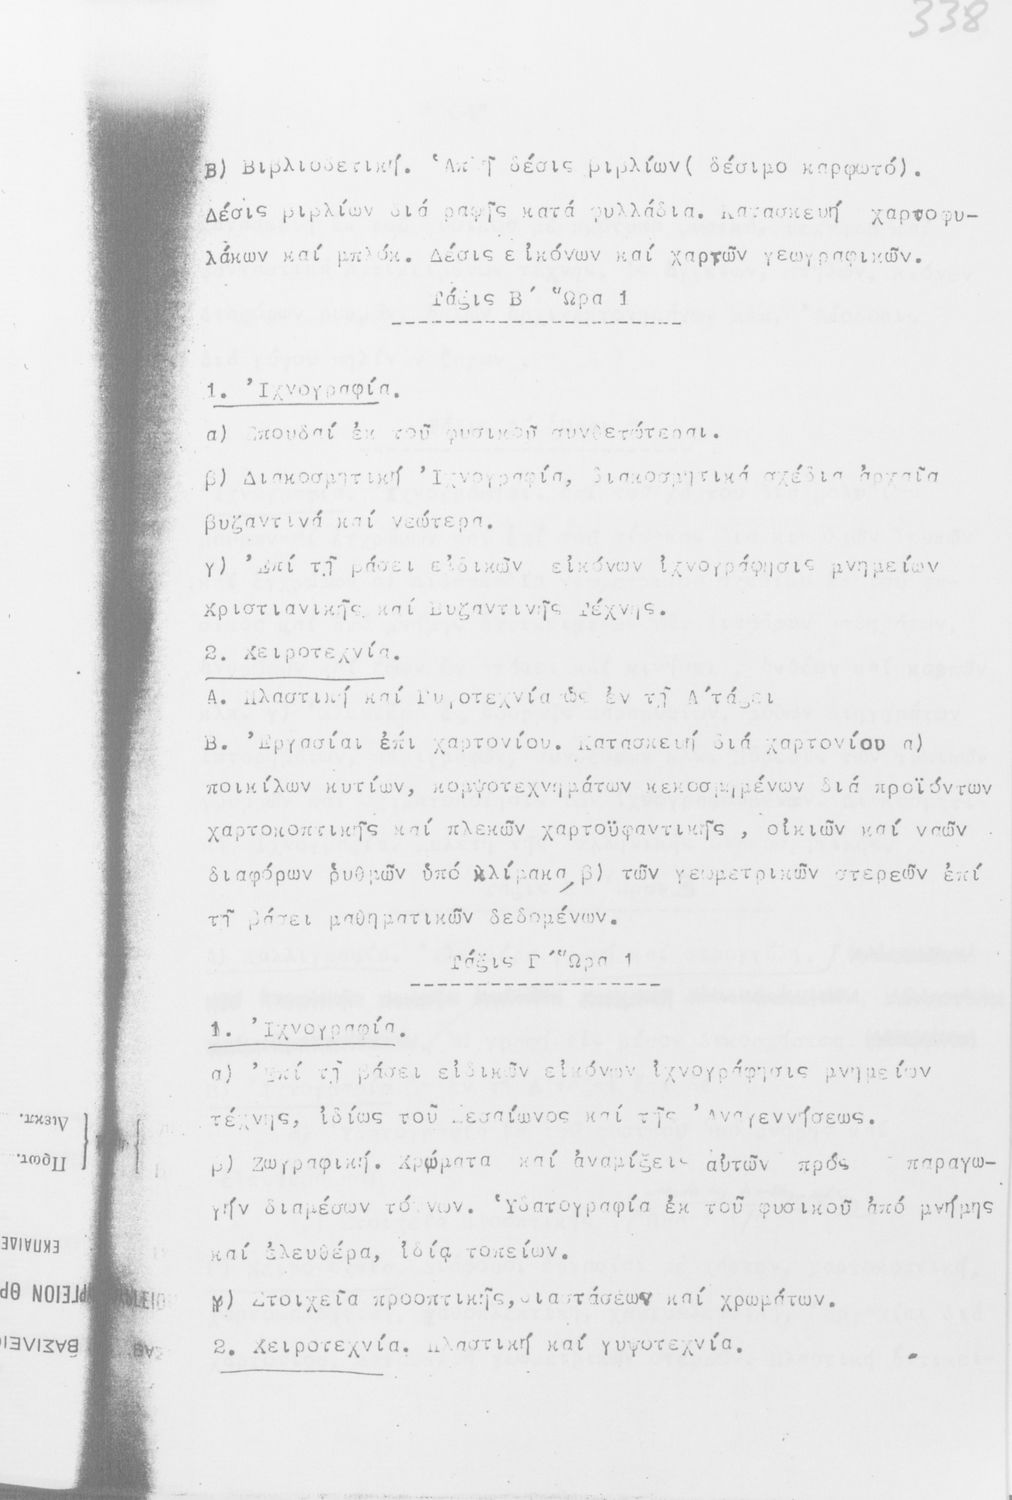 338
Β) Βιβλιοδετική. Ἁπλῆ δέσις βιβλίων( δέσιμο καρφωτό).
Δέσις βιβλίων διά ραφῆς κατά φυλλάδια. Κατασκευή χαρτοφυ-
λάκων καί μπλόκ. Δέσις εἰκόνων καί χαρτῶν γεωγραφικῶν.
Τάξις Β΄ Ὥρα 1
1. Ἰχνογραφία.
α) Σπουδαί ἐκ τοῦ φυσικοῦ συνθετώτεραι.
β) Διακοσμητική Ἰχνογραφία, διακοσμητικά σχέδια ἀρχαῖα
βυζαντινά καί νεώτερα.
γ) Ἐπί τῇ βάσει εἰδικῶν εἰκόνων ἰχνογράφησις μνημείων
Χριστιανικῆς καί Βυζαντινῆς Τέχνης.
2. Χειροτεχνία.
Α. Πλαστική καί Γυψοτεχνία ὡς ἐν τῇ Α΄τάξει
Β. Ἐργασίαι ἐπί χαρτονίου. Κατασκευή διά χαρτονίου α)
ποικίλων κυτίων, κομψοτεχνημάτων κεκοσμημένων διά προϊόντων
χαρτοκοπτικῆς καί πλεκῶν χαρτοϋφαντικῆς , οἰκιῶν καί ναῶν
διαφόρων ῥυθμῶν ὑπό κλίμακα, β) τῶν γεωμετρικῶν στερεῶν ἐπί
τῇ βάσει μαθηματικῶν δεδομένων.
Τάξις Γ΄ Ὥρα 1
1. Ἰχνογραφία.
α) Ἐπί τῇ βάσει εἰδικῶν εἰκόνων ἰχνογράφησις μνημείων
τέχνης, ἰδίως τοῦ Μεσαίωνος καί τῆς Ἀναγεννήσεως.
β) Ζωγραφική. Χρώματα καί ἀναμίξεις αὐτῶν πρός παραγω-
γήν διαμέσων τόνων. Ὑδατογραφία ἐκ τοῦ φυσικοῦ ἀπό μνήμης
καί ἐλευθέρα, ἰδίᾳ τοπείων.
γ) Στοιχεῖα προοπτικῆς, διαστάσεων καί χρωμάτων.
2. Χειροτεχνία. Πλαστική καί γυψοτεχνία.
Διεκπ.
Πρωτ.
ΕΚΠΑΙΔΕ
ΒΑΣΙΛΕΙΟ